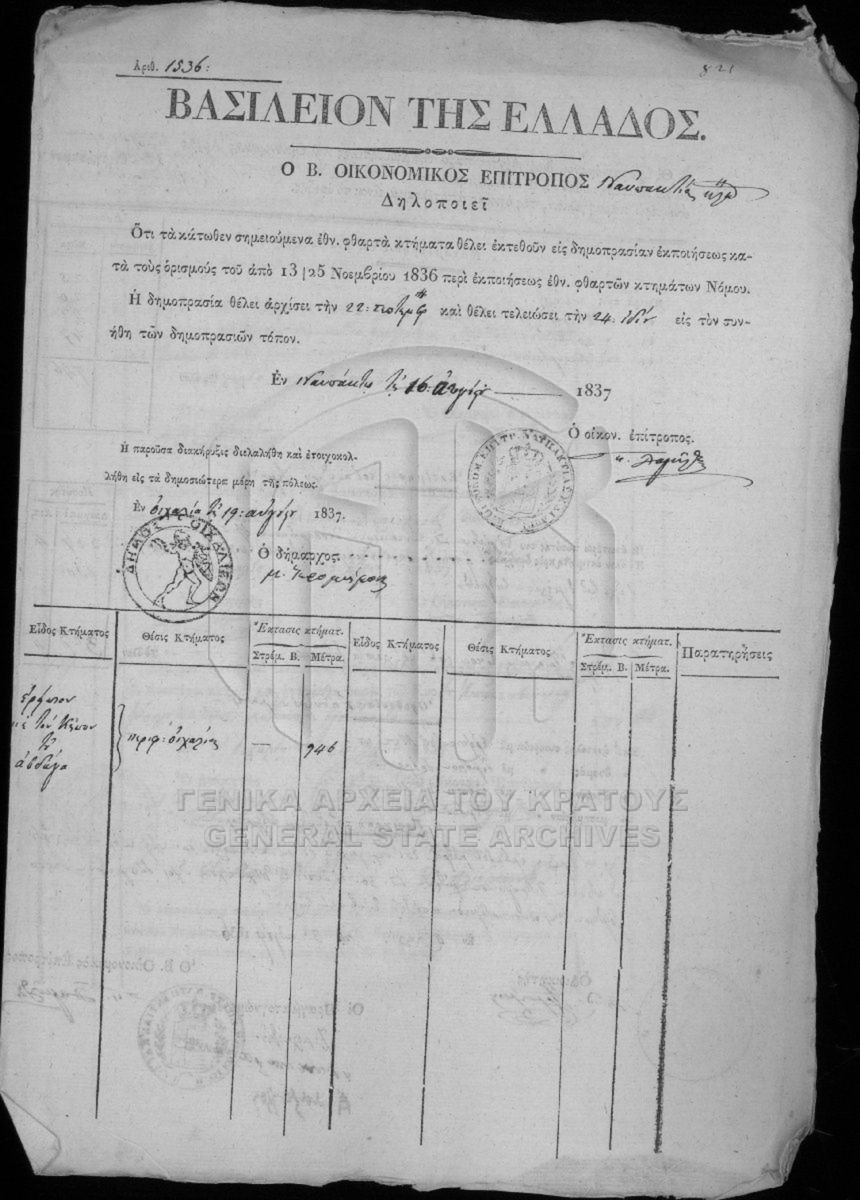 Αριθ. 1536:
821
ΒΑΣΙΛΕΙΟΝ ΤΗΣ ΕΛΛΑΔΟΣ.
Ο Β. ΟΙΚΟΝΟΜΙΚΟΣ ΕΠΙΤΡΟΠΟΣ Ναυπακτίας
Δηλοποιεῖ
Ὅτι τὰ κάτωθεν σημειούμενα ἐθν. φθαρτὰ κτήματα θέλει ἐκτεθοῦν εἰς δημοπρασίαν ἐκποιήσεως κα-
τὰ τοὺς ὁρισμοὺς τοῦ ἀπὸ 13|25 Νοεμβρίου 1836 περὶ ἐκποιήσεως ἐθν. φθαρτῶν κτημάτων Νόμου.
Ἡ δημοπρασία θέλει ἀρχίσει τὴν 22: καὶ θέλει τελειώσει τὴν 24. ἰδίου εἰς τὸν συν-
ήθη τῶν δημοπρασιῶν τόπον.
Ἐν Ναυπάκτῳ 16: 1837
Ὁ οἰκον. ἐπίτροπος.
Ἡ παροῦσα διακήρυξις διελαλήθη καὶ ἐτοιχοκολ-
λήθη εἰς τὰ δημοσιώτερα μέρη τῆς πόλεως.
Ἐν 19: 1837.
ΔΗΜΟΣ ΟΙΧΑΛΙΕΩΝ
Ὁ δήμαρχος.
Εἶδος Κτήματος Θέσις Κτήματος Ἔκτασις κτήματ. Εἶδος Κτήματος Θέσις Κτήματος Ἔκτασις κτήματ. Παρατηρήσεις
Στρέμ. Β. Μέτρα. Στρέμ. Β. Μέτρα.
περιφ: οἰχαλίας — 946
ΓΕΝΙΚΑ ΑΡΧΕΙΑ ΤΟΥ ΚΡΑΤΟΥΣ
GENERAL STATE ARCHIVES